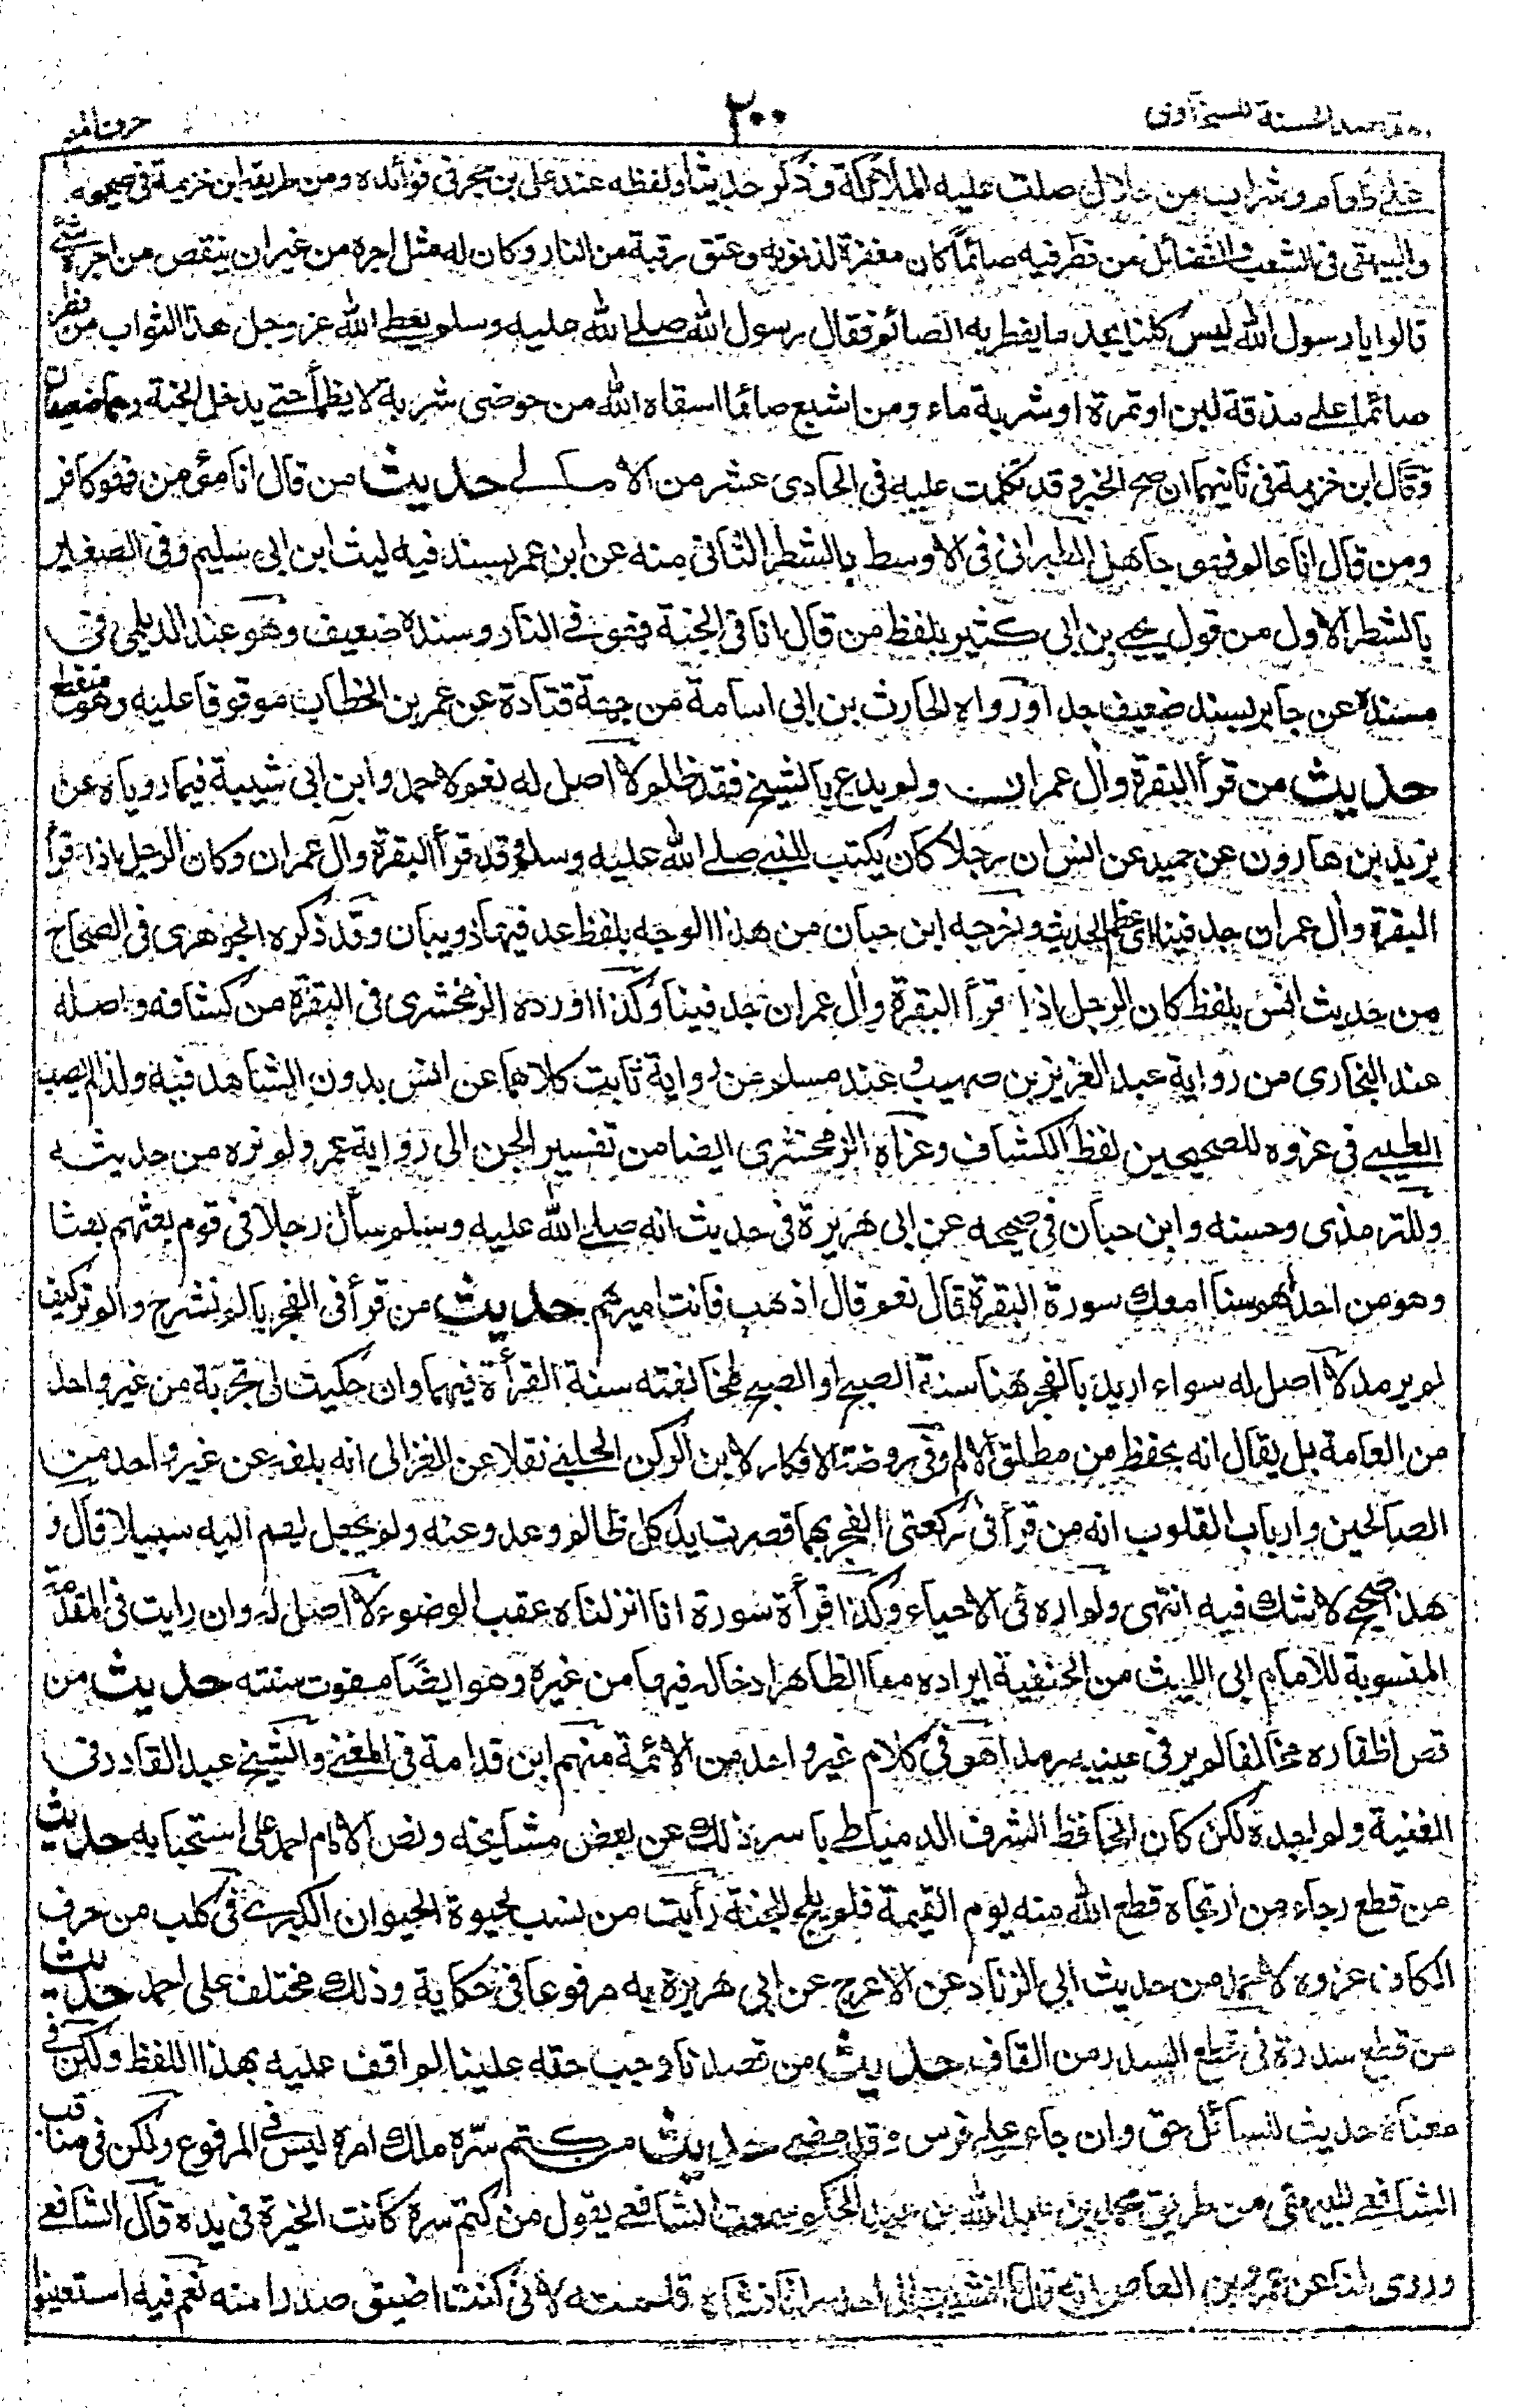 المقاصد الحسنة للسخاوى
٢٠٠
حرف الميم
على طعام وشراب من حلال صلت عليه الملائكة وذكر حديثا ولفظه عند على بن حجر فى فوائده ومن طريقه ابن خزيمة فى صحيحه
والبيهقى فى الشعب والفضائل من فطر فيه صائمًا كان مغفرة لذنوبه وعتق رقبة من النار وكان له مثل اجره من غير ان ينقص من اجره شئ
قالوا يا رسول الله ليس كلنا يجد ما يفطر به الصائم فقال رسول الله صلے الله عليه وسلم يعطے الله عز وجل هذا الثواب من فطر
صائما على مذقة لبن او تمرة او شربة ماء ومن اشبع صائما اسقاه الله من حوضى شربة لا يظمأ حتے يدخل الجنة وهما ضعيفان
وقال ابن خزيمة فى ثانيهما ان صح الخبر وقد تكلمت عليه فى الحادى عشر من الامالے حديث من قال انا مؤمن فهو كافر
ومن قال انا عالم فهو جاهل الطبرانى فى الاوسط بالشطر الثانى منه عن ابن عمر بسند فيه ليث ابن ابى سليم وفى الصغير
بالشطر الاول من قول يحيے بن ابى كثير بلفظ من قال انا فى الجنة فهو فے النار وسنده ضعيف وهو عند الديلمى فى
مسنده عن جابر بسند ضعيف جدا ورواه الحارث بن ابى اسامة من جهة قتادة عن عمر بن الخطاب موقوفا عليه وهو منقطع
حديث من قرأ البقرة وآل عمران ولم يدع يا لشيخ فقد ظلم لا اصل له نعم لاحمد وابن ابى شيبة فيما روياه عن
يزيد بن هارون عن حميد عن انس ان رجلا كان يكتب للنبے صلے الله عليه وسلم وقد قرأ البقرة وآل عمران وكان الرجل اذا قرأ
البقرة وآل عمران جد فينا اى عظم الحديث وخرجه ابن حبان من هذا الوجه بلفظ عد فيها ذو بيان وقد ذكره الجوهرى فى الصحاح
من حديث انس بلفظ كان الرجل اذا قرأ البقرة وآل عمران جد فينا وكذا اورده الزمخشرى فى البقرة من كشافه واصله
عند البخارى من رواية عبد العزيز بن صهيب وعند مسلم من رواية ثابت كلاهما عن انس بدون الشاهد فيه ولذا لم يصب
الطيبے فى عزوه للصحيحين لفظ الكشاف وعزاه الزمخشرى ايضا من تفسير الجن الى رواية عمر ولم نره من حديثه
وللترمذى وحسنه وابن حبان فى صحيحه عن ابى هريرة فى حديث انه صلے الله عليه وسلم سأل رجلا فى قوم بعثهم بعثا
وهو من احدثهم سنا امعك سورة البقرة قال نعم قال اذهب فانت اميرهم حديث من قرأ فى الفجر بالم نشرح والم تر كيف
لم يرمد لا اصل له سواء اريد بالفجر هنا سنة الصبح او الصبح لمخالفته سنة القرأة فيهما وان حكيت لى تجربة من غير واحد
من العامة بل يقال انه يحفظ من مطلق الالم وفى روضة الافكار لابن الركن الحلبے نقلا عن الغزالى انه بلغه عن غير واحد من
الصالحين وارباب القلوب انه من قرأ فى ركعتى الفجر بهما قصرت يد كل ظالم وعدو عنه ولم يجعل لهم اليه سبيلا قال و
هذا صحيح لا شك فيه انتهى ولم اره فى الاحياء وكذا قرأة سورة انا انزلناه عقب الوضوء لا اصل له وان رايت فى المقدمة
المنسوبة للامام ابى الليث من الحنفية ايراده مما الظاهر ادخاله فيها من غيره وهو ايضًا مفوت سنته حديث من
قص اظفاره مخالفا لم ير فى عينيه رمدا هو فى كلام غير واحد من الائمة منهم ابن قدامة فى المغنے والشيخ عبد القادر فى
الغنية ولم اجده لكن كان الحافظ الشرف الدمياطے ياثر ذلك عن بعض مشايخه ونص الامام احمد على استحبابه حديث
من قطع رجاء من ارتجاه قطع الله منه يوم القيمة فلم يلج الجنة رأيت من نسب لحيوة الحيوان الكبرے فى كلب من حرف
الكاف عزوه لاحمد من حديث ابى الزناد عن الاعرج عن ابى هريرة به مرفوعا فى حكاية وذلك مختلف على احمد حديث
من قطع سدرة فى قطع السدر من القاف حديث من قصدنا وجب حقه علينا لم اقف عليه بهذا اللفظ ولكن فى
معناه حديث للسائل حق وان جاء على فرس وقد مضے حديث من كتم سرّه ملك امره ليس فى المرفوع ولكن فى مناقب
الشافعے للبيهقى من طريق محمد بن عبد الله بن عبد الحكم سمعت الشافعے يقول من كتم سره كانت الخيرة فى يده قال الشافعے
وروى لنا عن عمرو بن العاص انه قال ما افشيت الى احد سرا فافشاه فلمته لانى كنت اضيق صدرا منه نعم فيه استعينوا